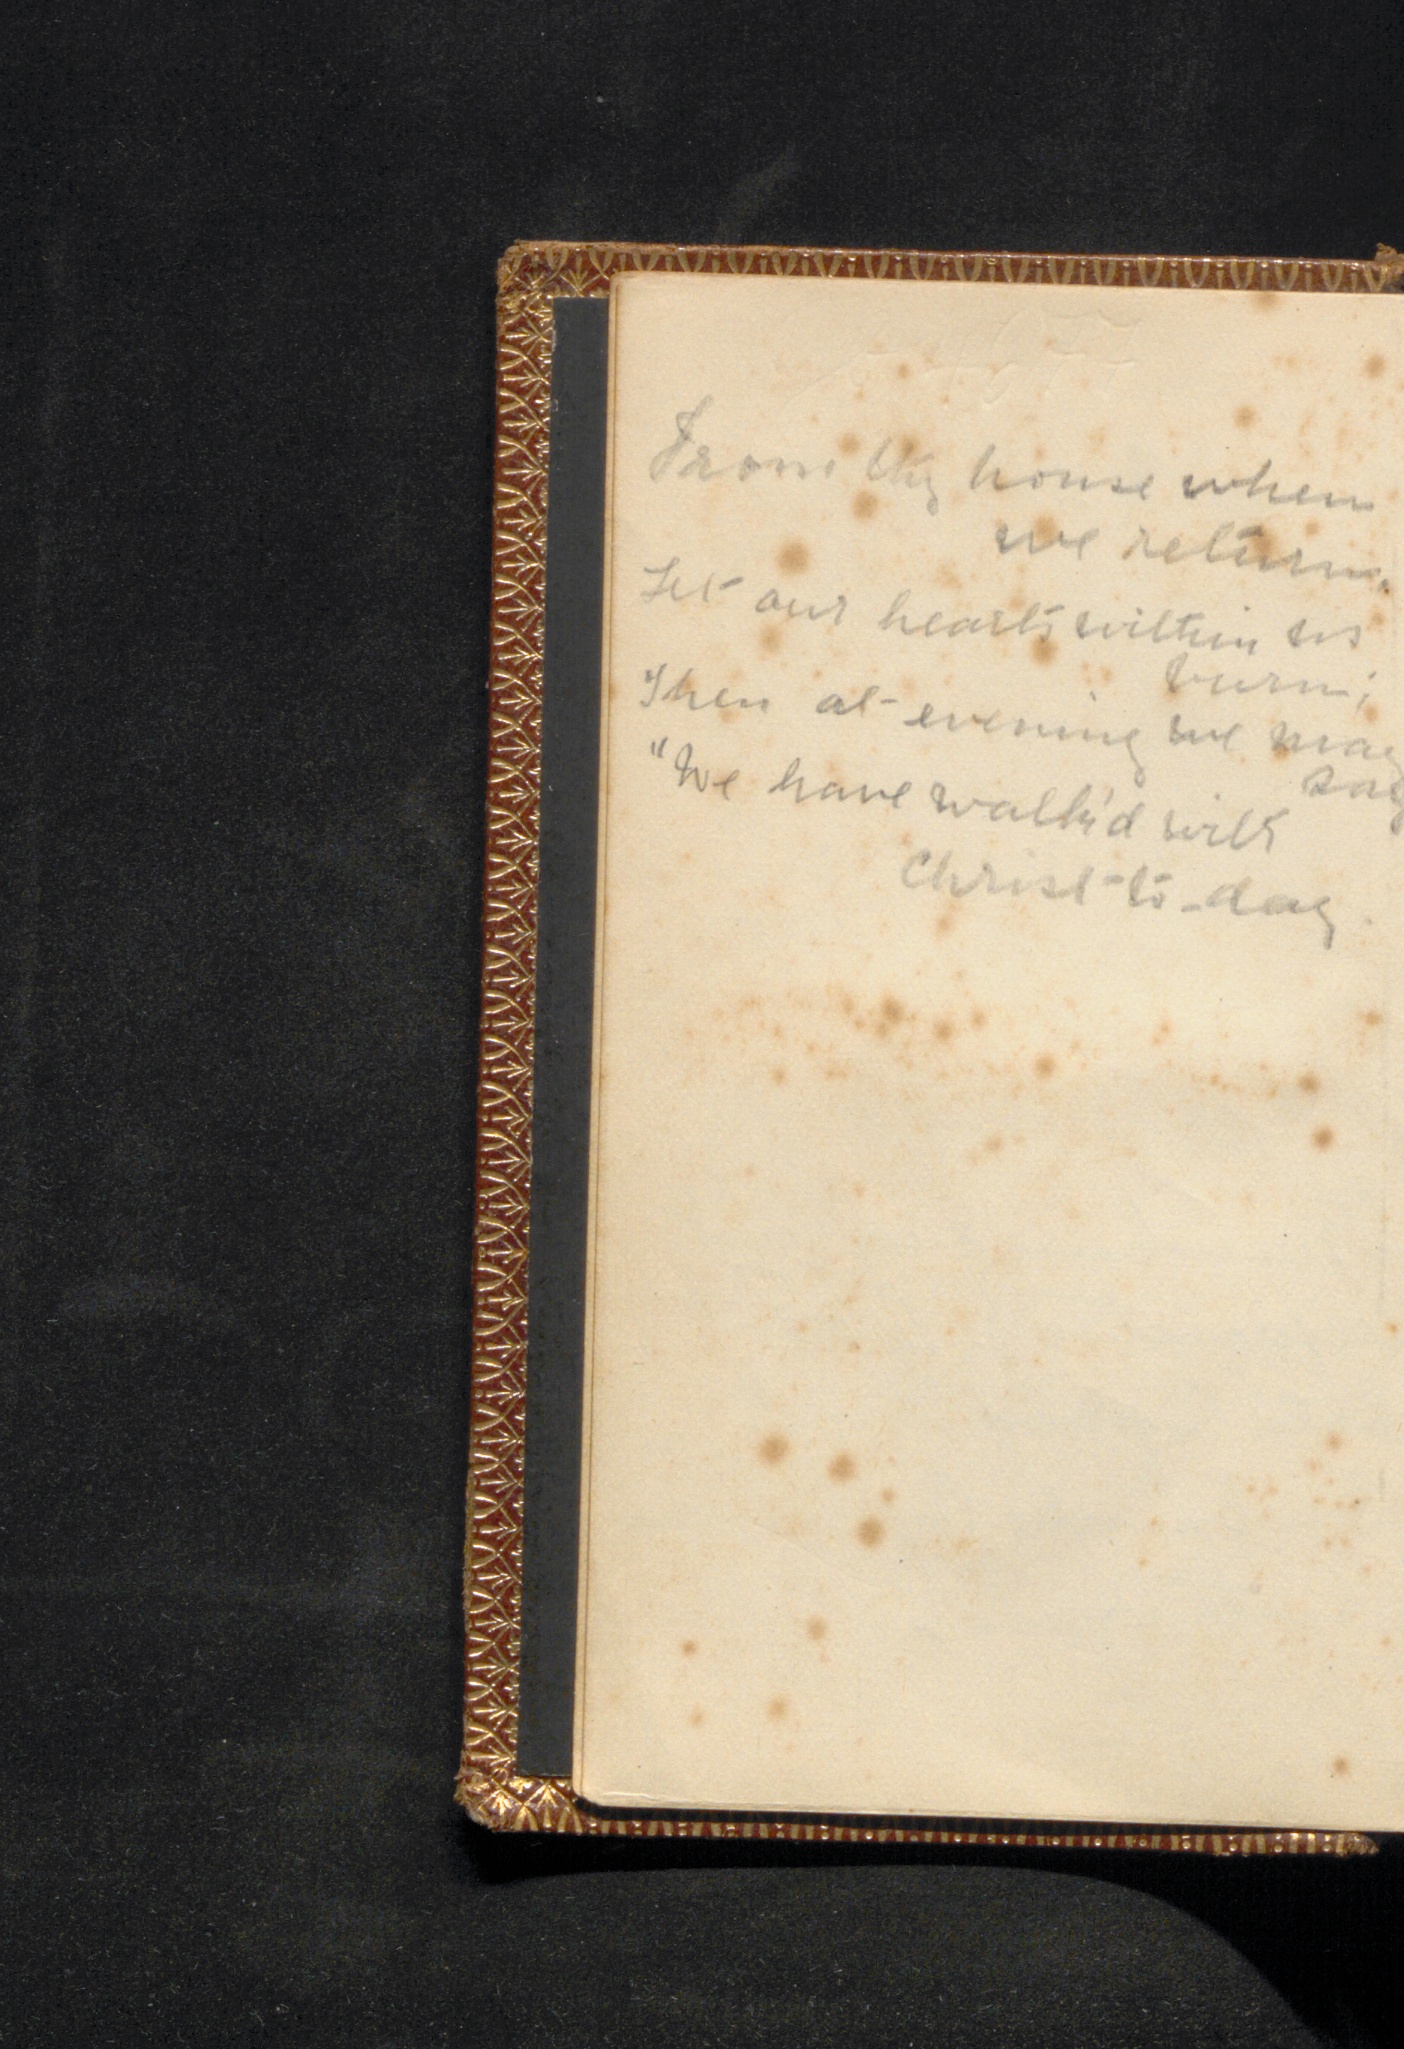 From thy house when
we return.
Let our hearts within us
burn;
Then at evening we may
say
"We have walk'd with
Christ to-day.